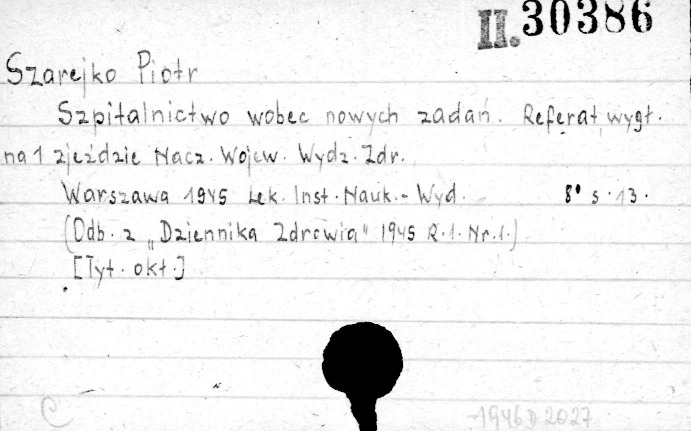 II. 30386
Szarejko Piotr
Szpitalnictwo wobec nowych zadań. Referat wygł.
na 1 zjeździe Nacz. Wojew. Wydz. Zdr.
Warszawa 1945 Lek. Inst. Nauk.-Wyd. 8° s. 13.
(Odb. z „Dziennika Zdrowia" 1945 R.1. Nr.1.)
[Tyt. okł.]
C 1946 D 2027